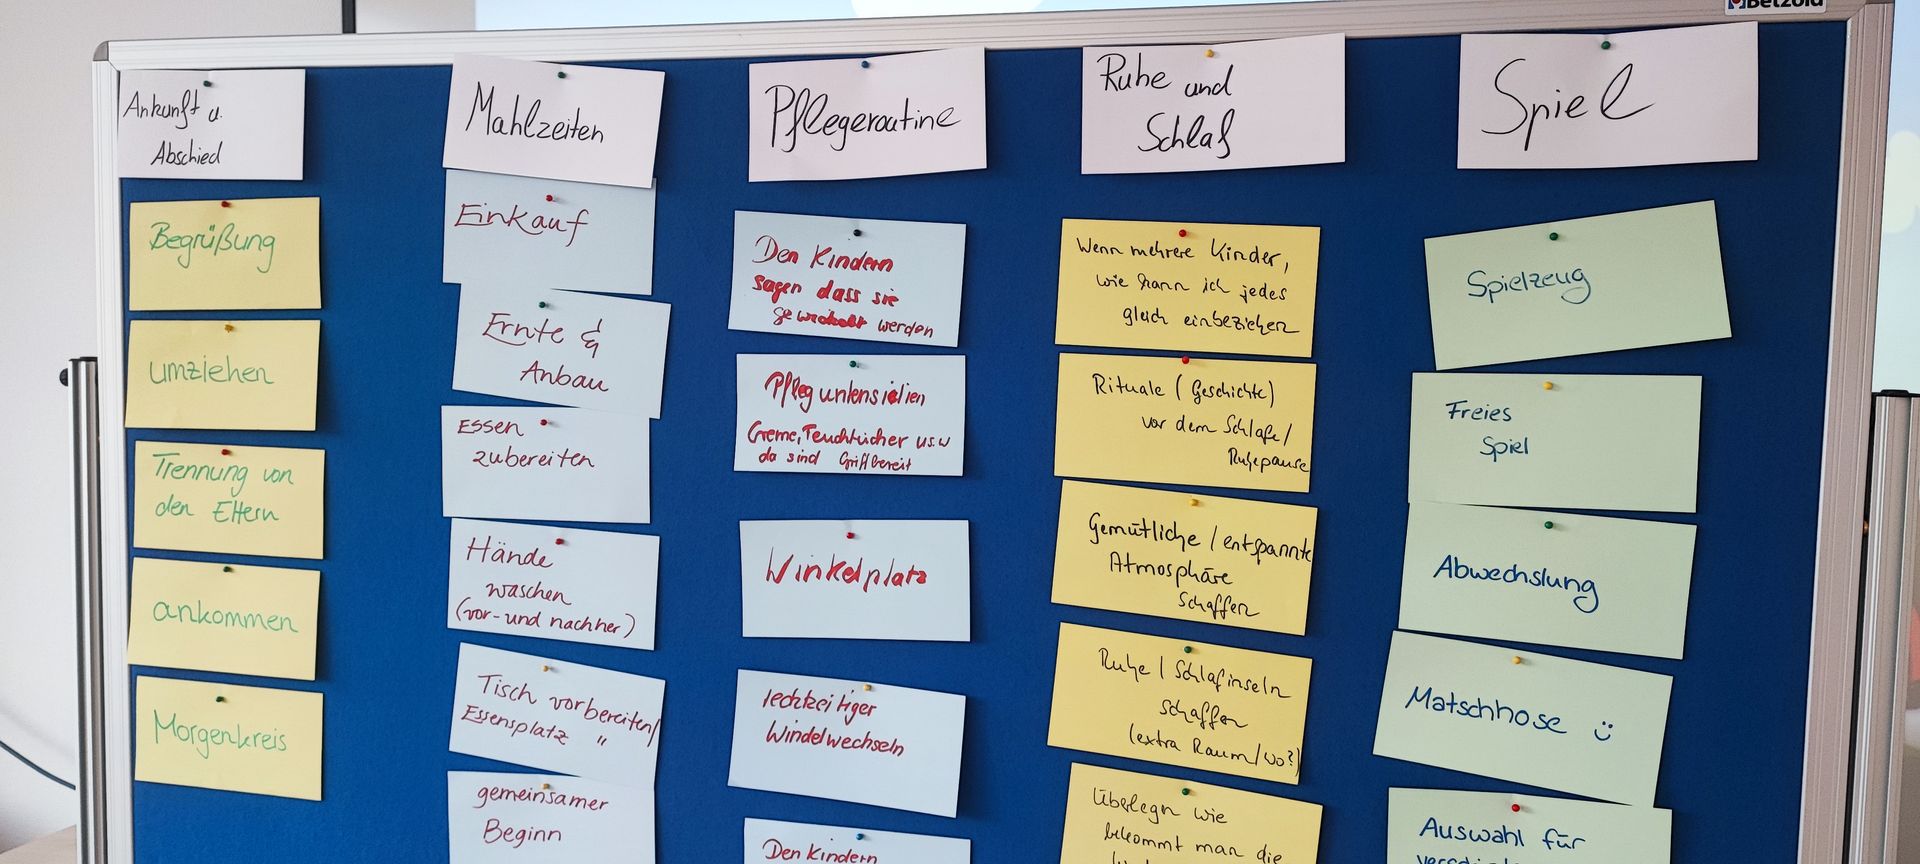 Betzold
Ankunft u.
Abschied
Begrüßung
umziehen
Trennung von
den Eltern
ankommen
Morgenkreis
Mahlzeiten
Einkauf
Ernte &
Anbau
Essen
zubereiten
Hände
waschen
(vor- und nachher)
Tisch vorbereiten/
Essensplatz "
gemeinsamer
Beginn
Pflegeroutine
Den Kindern
sagen dass sie
gewickelt werden
Pfleg untensielien
Creme, Feuchtücher u.s.w
da sind Griffbereit
Winkelplatz
rechzeitiger
Windelwechseln
Den Kindern
Ruhe und
Schlaf
Wenn mehrere Kinder,
wie kann ich jedes
gleich einbeziehen
Rituale (Geschichte)
vor dem Schlafe/
Ruhepause
Gemütliche / entspannte
Atmosphäre
schaffen
Ruhe / Schlafinseln
schaffen
(extra Raum/wo?)
Überlegn wie
bekommt man die
Spiel
Spielzeug
Freies
Spiel
Abwechslung
Matschhose ü
Auswahl für